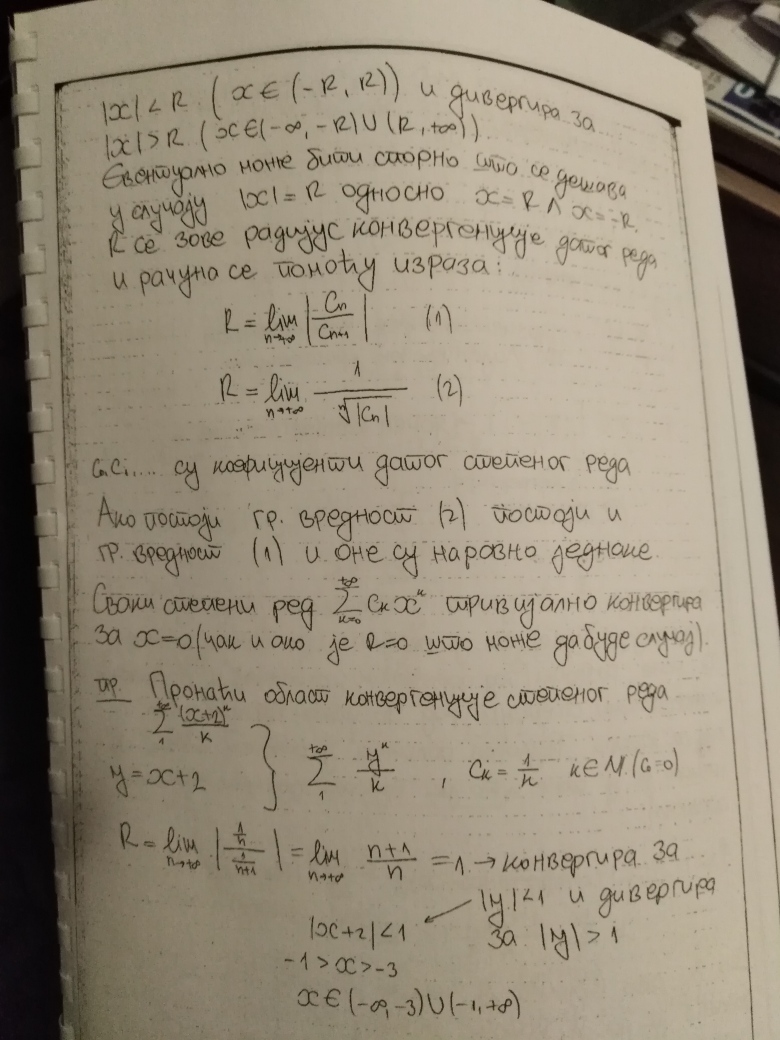 |x| < R (x ∈ (-R, R)) и дивергира за
|x| > R (x ∈ (-∞, -R) ∪ (R, +∞))
Евентуално може бити спорно што се дешава
у случају |x| = R односно x = R ∧ x = -R.
R се зове радијус конвергенције датог реда
и рачуна се помоћу израза:
R = lim n→+∞ |Cn / Cn+1| (1)
R = lim n→+∞ 1 / ⁿ√|Cn| (2)
C0, C1, ... су коефицијенти датог степеног реда
Ако постоји гр. вредност (2) постоји и
гр. вредност (1) и оне су наравно једнаке.
Сваки степени ред ∑ k=0 +∞ Ck x^k тривијално конвергира
за x=0 (чак и ако је R=0 што може да буде случај).
пр. Пронаћи област конвергенције степеног реда
∑ 1 +∞ (x+2)^k / k
y = x+2 } ∑ 1 +∞ y^k / k , Ck = 1/k k ∈ N (C0=0)
R = lim n→+∞ |(1/n) / (1/(n+1))| = lim n→+∞ (n+1)/n = 1 → конвергира за
|y| < 1 и дивергира
за |y| > 1
|x+2| < 1
-1 > x > -3
x ∈ (-∞, -3) ∪ (-1, +∞)